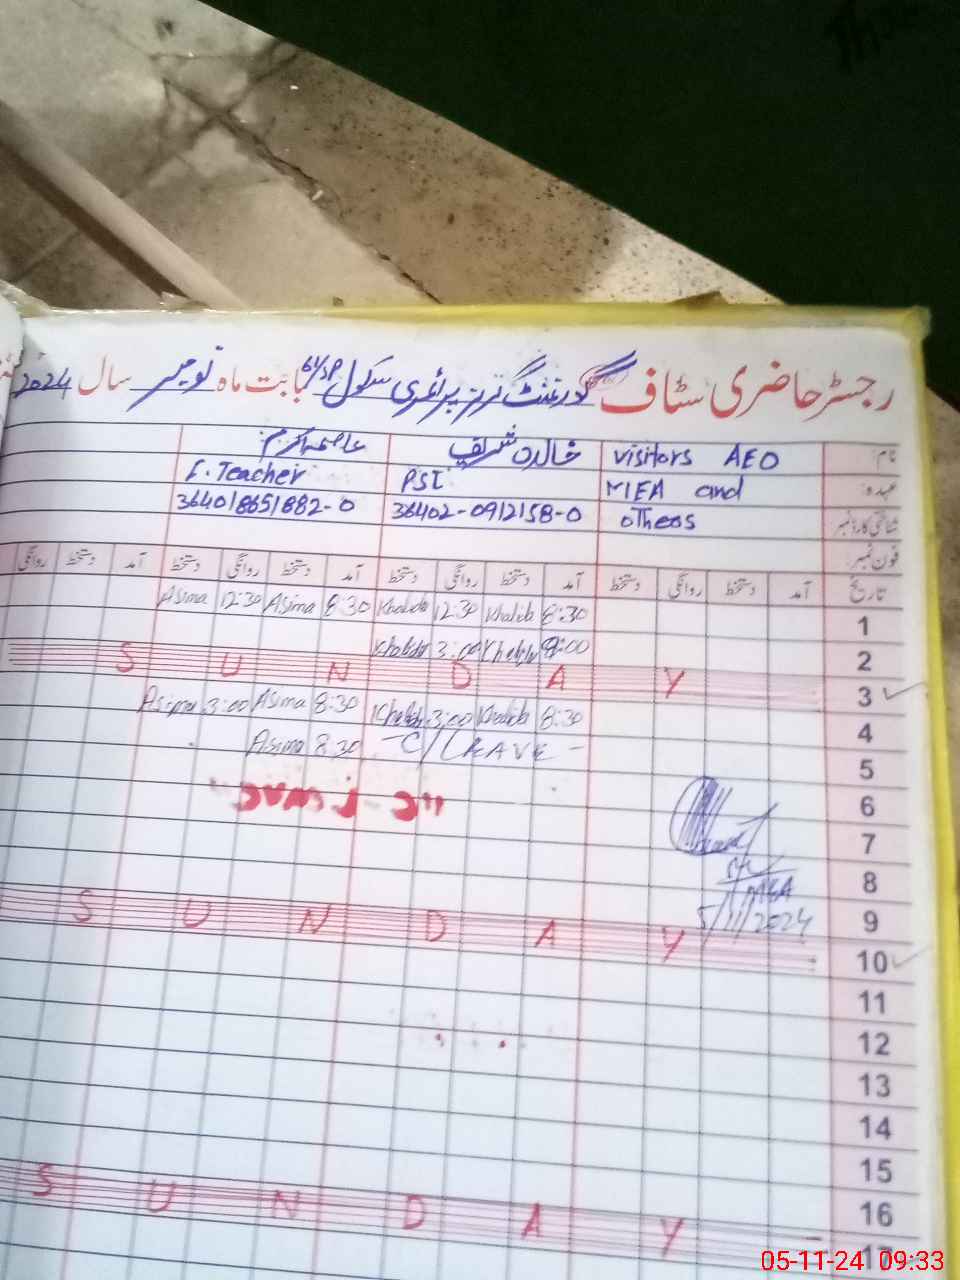 رجسٹر حاضری سٹاف گورنمنٹ گرلز پرائمری سکول 64/SP بابت ماہ نومبر سال 2024
نام: visitors AEO خالدہ شریف عاصمہ اکرم
عہدہ: MEA and PST E. Teacher
شناختی کارڈ نمبر others 36402-0912158-0 364018651882-0
فون نمبر:
تاریخ آمد دستخط روانگی دستخط آمد دستخط روانگی دستخط آمد دستخط روانگی دستخط آمد دستخط روانگی
1 8:30 Khalida 12:30 Khalida 8:30 Asima 12:30 Asima
2 Khalida 3:00 Khalida
3 S U N D A Y
4 8:30 Khalida 3:00 Khalida 8:30 Asima 3:00 Asima
5 C/LEAVE - 8:30 Asima
6
7
8
MEA
9
5/11/2024
10 S U N D A Y
11
12
13
14
15
16
S U N D A Y
17
05-11-24 09:33